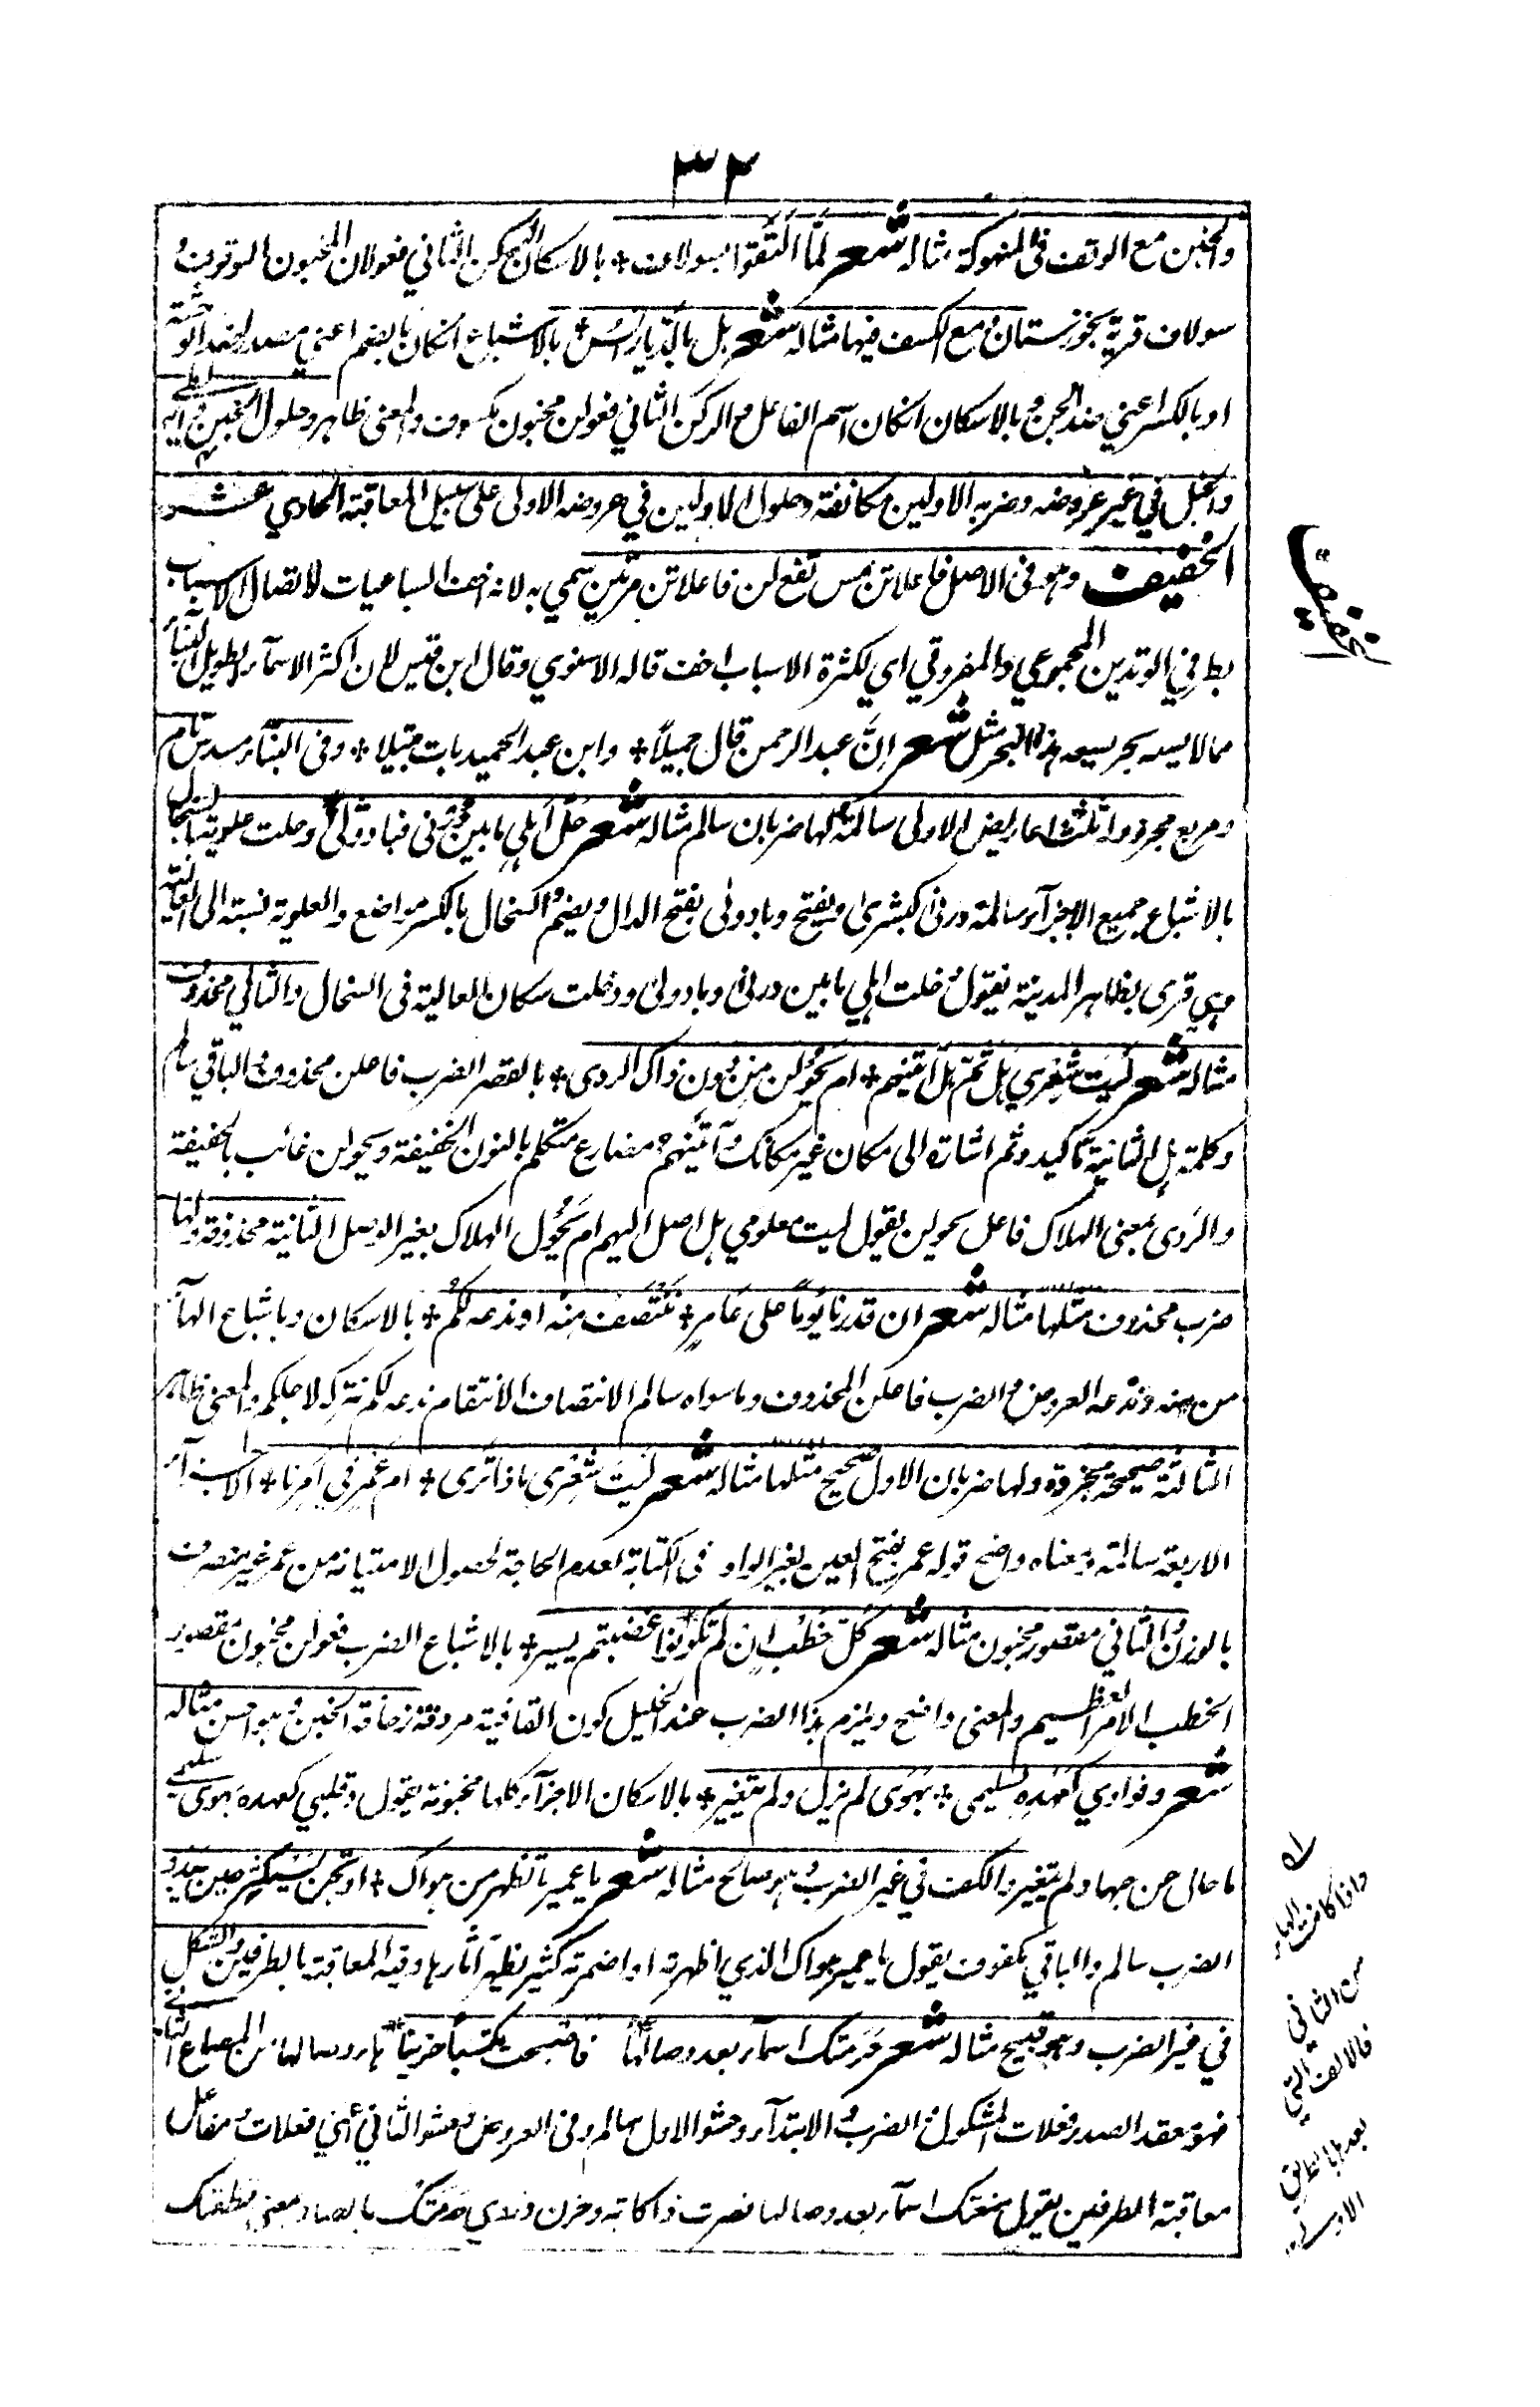 ٣٢
والخبن مع الوقف فى المنهوكة مثاله شعر لمّا التقوا بسولاف * بالاسكان الركن الثاني فعولان المخبون الموقوف
سولاف قرية بخوزستان ومع الكسف فيها مثاله شعر هل بالديار انس * بالاشباع انكان بالضم اعني مصدرا ضد الوحشة
او بالكسر اعني ضد الجن وبالاسكان انكان اسم الفاعل والركن الثاني فعولن مخبون مكسوف والمعنى ظاهر وحلول الخبن
والخبل في غير عروضه وضربه الاولين مكانفة وحلول الاولين في عروضه الاولى على سبيل المعاقبة الحادي عشر
الخفيف وهو فى الاصل فاعلاتن مس تفع لن فاعلاتن مرتين سمي به لانه اخف السباعيات لاتصال الاسباب
بطرفي الوتدين المجموعي والمفروقي اي لكثرة الاسباب اخف قاله الاسنوي وقال ابن قتيس لان اكثر الاسمآء الطويل البنآء
مما لا يسعه بحر يسعه هذا البحر مثل شعر انّ عبد الرحمن قال جميلاً * وابن عبد الحميد بات * وفى البنآء مسدس تام
ومربع مجزو واثلث اعاريض الاولى سالمة لها ضربان سالم مثاله شعر حلّ اهلي ما بين درنى فبادولى وحلت علوية بالسخال
بالاشباع جميع الاجزآء سالمة درنى كبشرى ويفتح وبادولى بفتح الدال ويضم والسخال بالكسر مواضع والعلوية نسبة الى العالية
وهي قرى بظاهر المدينة يقول حلت اهلي ما بين درنى وبادولى ودخلت سكان العالية فى السخال والثاني محذوف
مثاله شعر ليت شعري هل ثم هل آتينهم * ام يحولن من دون ذاك الردى * بالقصر الضرب فاعلن محذوف والباقي سالم
وكلمة هل الثانية تاكيد وثم اشارة الى مكان غير مكانك وآتينهم مضارع متكلم بالنون الخفيفة ويحولن غائب بالخفيفة
والردى بمعنى الهلاك فاعل يحولن يقول ليت معلومي هل اصل اليهم ام يحول الهلاك بغير الوصل الثانية محذوفة ولها
ضرب محذوف مثلها مثاله شعر ان قدرنا يوماً على عامر * ننتصف منه او ندعه لكم * بالاسكان وباشباع الهآء
من منه وندعه العروض والضرب فاعلن المحذوف وما سواه سالم الانتصاف الانتقام ندعه لكم نتركه لاجلكم والمعنى ظاهر
الثالثة صحيحة مجزوة ولها ضربان الاول صحيح مثلها مثاله شعر ليت شعري ماذا ترى * ام عمر في امرنا * الاجزآء
الاربعة سالمة ومعناه واضح قوله عمر بفتح العين بغير الواو فى الكتابة لعدم الحاجة لحصول الامتياز من عمر غير منصرف
بالوزن والثاني مقصور مخبون مثاله شعر كلّ خطب ان لم تكونوا غضبتم يسير * بالاشباع الضرب فعولن مخبون مقصور
الخطب الامر العظيم والمعنى واضح ويلزم هذا الضرب عند الخليل كون القافية مردوفة زحافه الخبن وهو احسن مثاله
شعر وفؤادي كعهده لسليمى * بهوى لم يزل ولم يتغير * بالاسكان الاجزآء كلها مخبونة يقول وقلبي كعهده بهوى سليمى
ما حال عن حبها ولم يتغير والكف في غير الضرب وهو صالح مثاله شعر يا عمير ما تظهر من هواك * او تجن يستكثر حين يبدو
الضرب سالم والباقي مكفوف يقول يا عمير هواك الذي اظهرته او اضمرته كثير يظهر آثارها وفيه المعاقبة بالطرفين والشكل
في غير الضرب وهو قبيح مثاله شعر صرمتك اسمآء بعد وصالها فاصبحت مكتئباً حزيناً هاء وصالها من المصراع الثاني
فهو معقد الصدر فعلات المشكول والضرب والابتدآء وحشو الاول سالم وفى العروض وحشو الثاني اعني فعلات مفاعل
معاقبة الطرفين يقول منعتك اسمآء بعد وصالها فصرت ذا كآبة وحزن وندي صرمتك بالصاد بمعنى قطعتك
الخفيف
واذا كانت الهاء
من الثاني
فالالف التي
بعدها